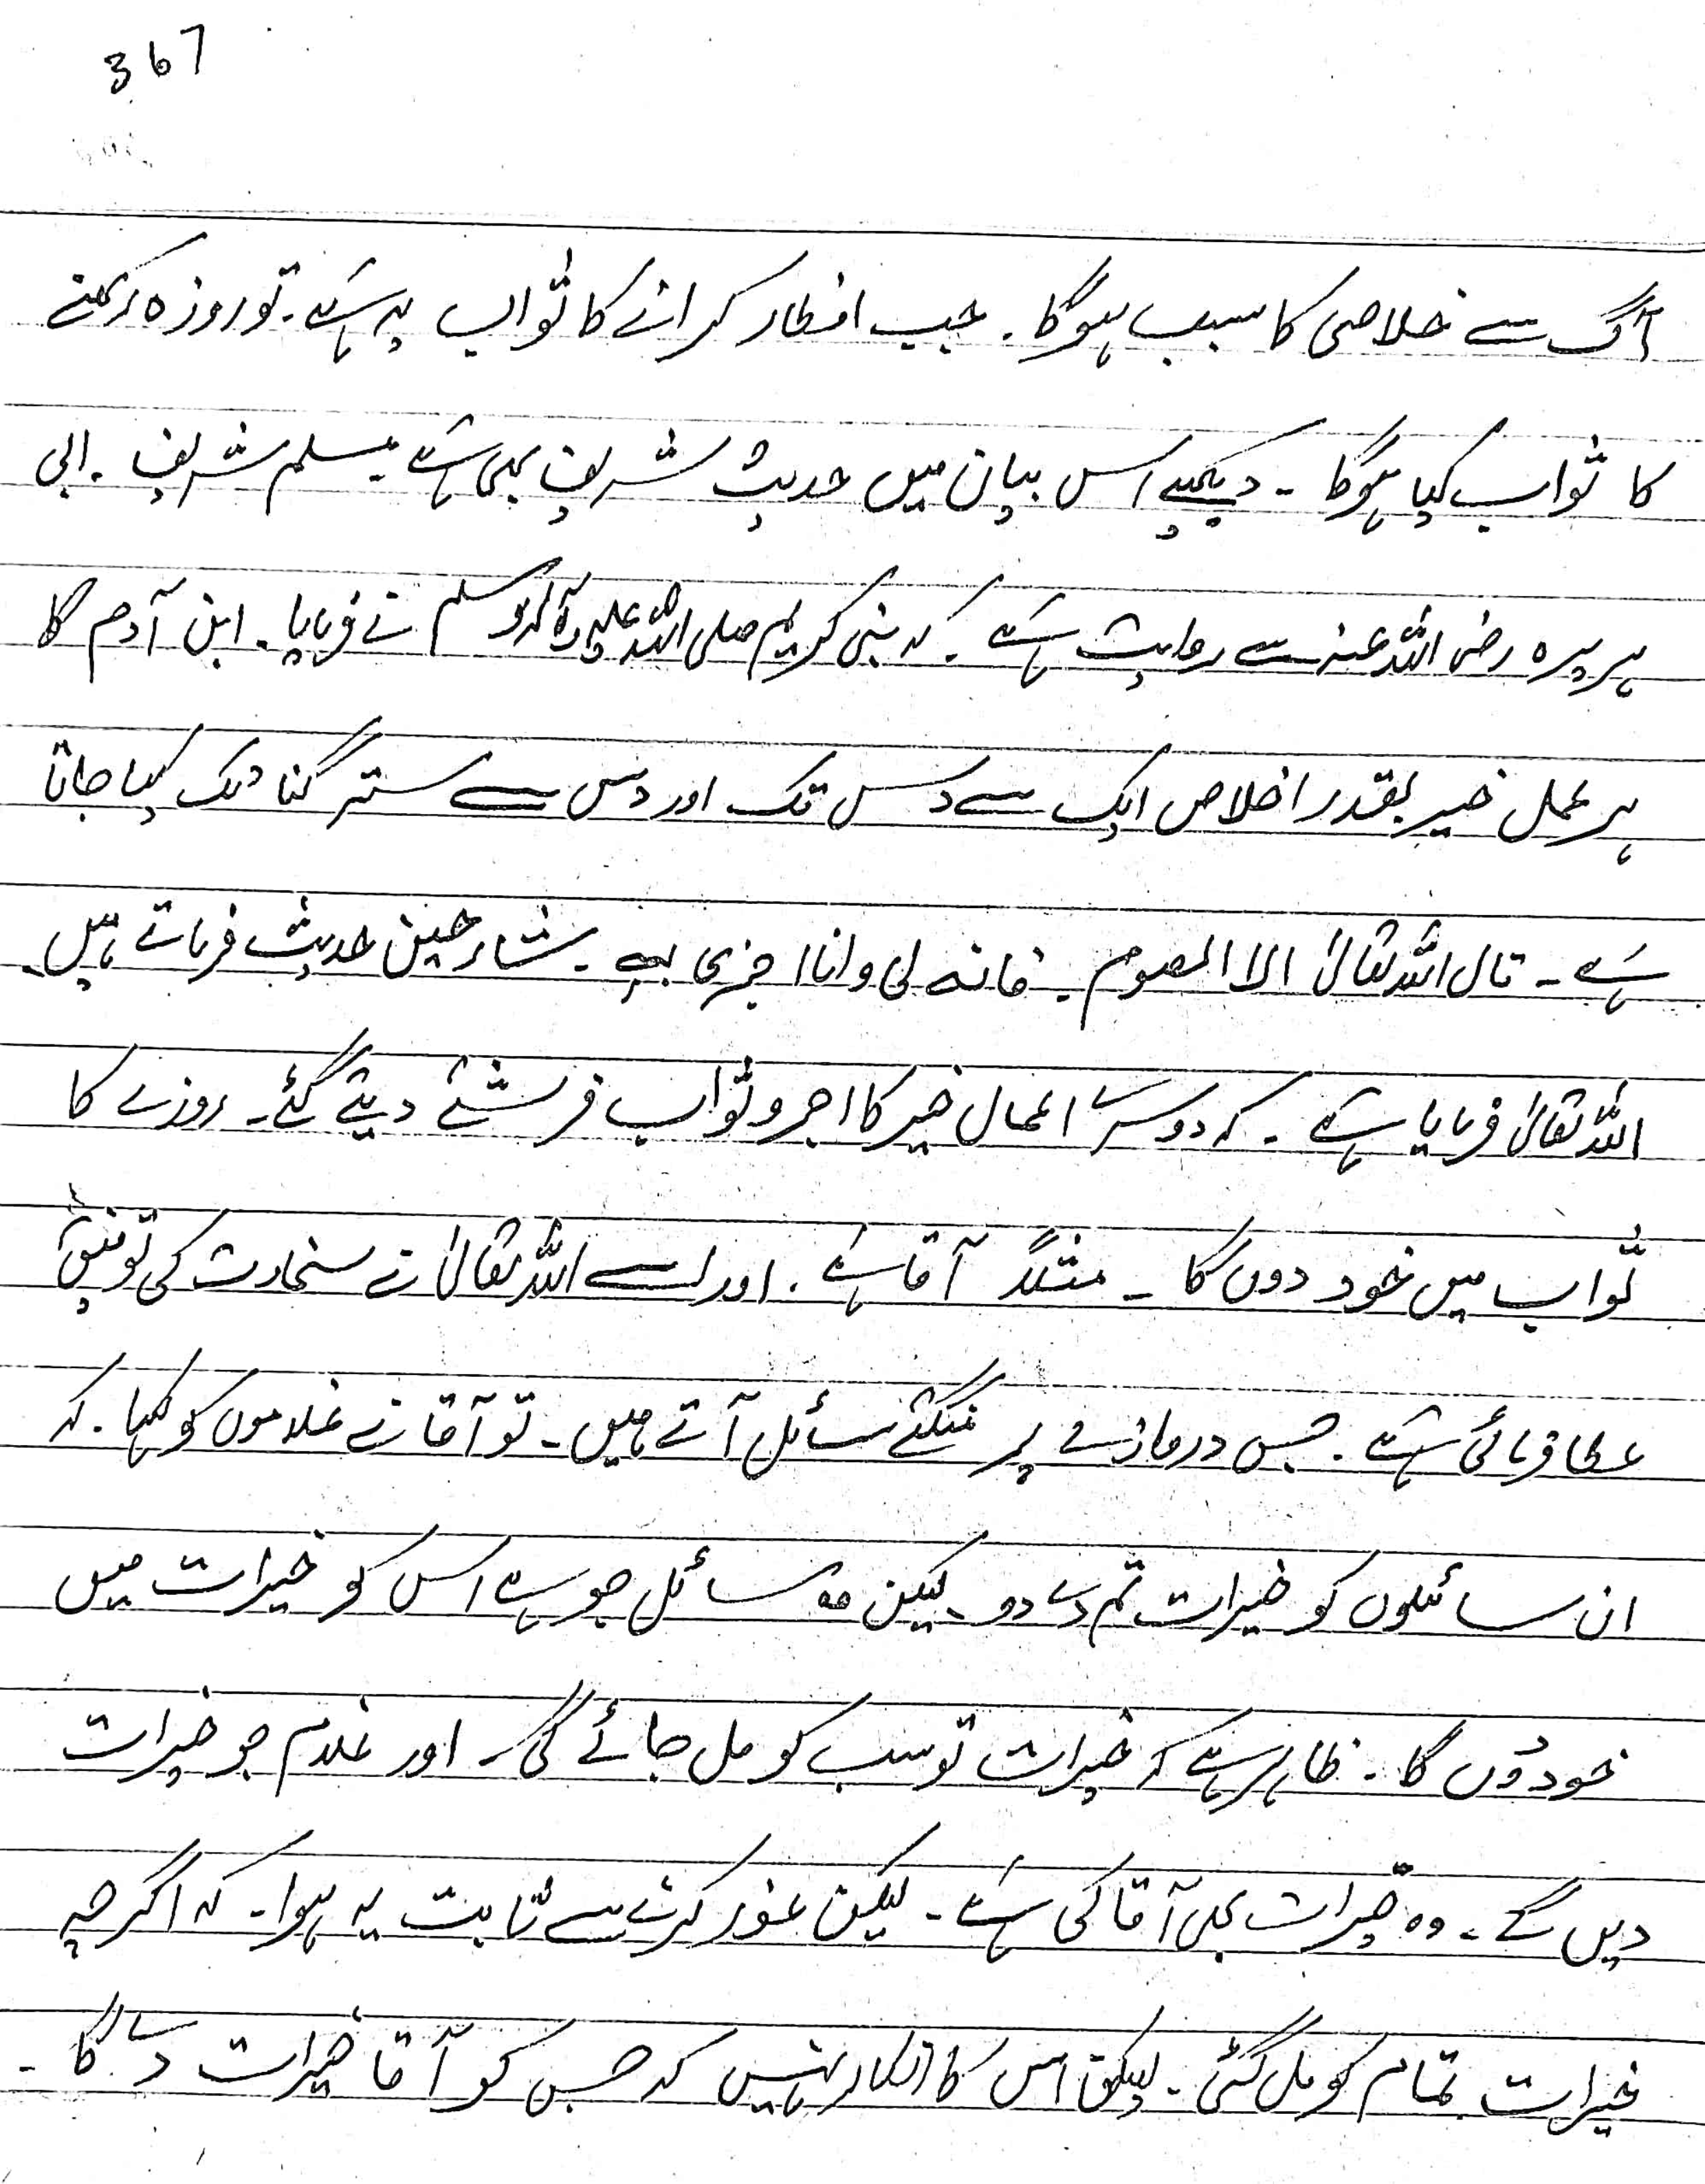 367
آگ سے خلاصی کا سبب ہوگا۔ جب افطار کرانے کا ثواب یہ ہے۔ تو روزہ رکھنے
کا ثواب کیا ہوگا۔ دیکھیے اس بیان میں حدیث شریف بھی ہے مسلم شریف۔ ابی
ہریرہ رضی اللہ عنہ سے روایت ہے۔ کہ نبی کریم صلی اللہ علیہ وآلہ وسلم نے فرمایا۔ ابن آدم کا
ہر عمل خیر بقدر اخلاص ایک سے دس تک اور دس سے ستر گنا تک کیا جاتا
ہے۔ قال اللہ تعالیٰ الا الصوم۔ فانہ لی وانا اجزی بہ۔ شارحین حدیث فرماتے ہیں۔
اللہ تعالیٰ فرمایا ہے۔ کہ دوسرے اعمال خیر کا اجر و ثواب فرشتے دیتے گئے۔ روزے کا
ثواب میں خود دوں گا۔ مثلاً آقا ہے۔ اور اسے اللہ تعالیٰ نے سخاوت کی توفیق
عطا فرمائی ہے۔ جس دروازے پر منگتے سائل آتے ہیں۔ تو آقا نے غلاموں کو کہا۔ کہ
ان سائلوں کو خیرات تم دے دو۔ لیکن وہ سائل جو ہے اس کو خیرات میں
خود دُوں گا۔ ظاہر ہے کہ خیرات تو سب کو مل جائے گی۔ اور غلام جو خیرات
دیں گے۔ وہ خیرات بھی آقا کی ہے۔ لیکن غور کرنے سے ثابت یہ ہوا۔ کہ اگرچہ
خیرات تمام کو مل گئی۔ لیکن اس کا انکار نہیں کہ جس کو آقا خیرات دے گا۔